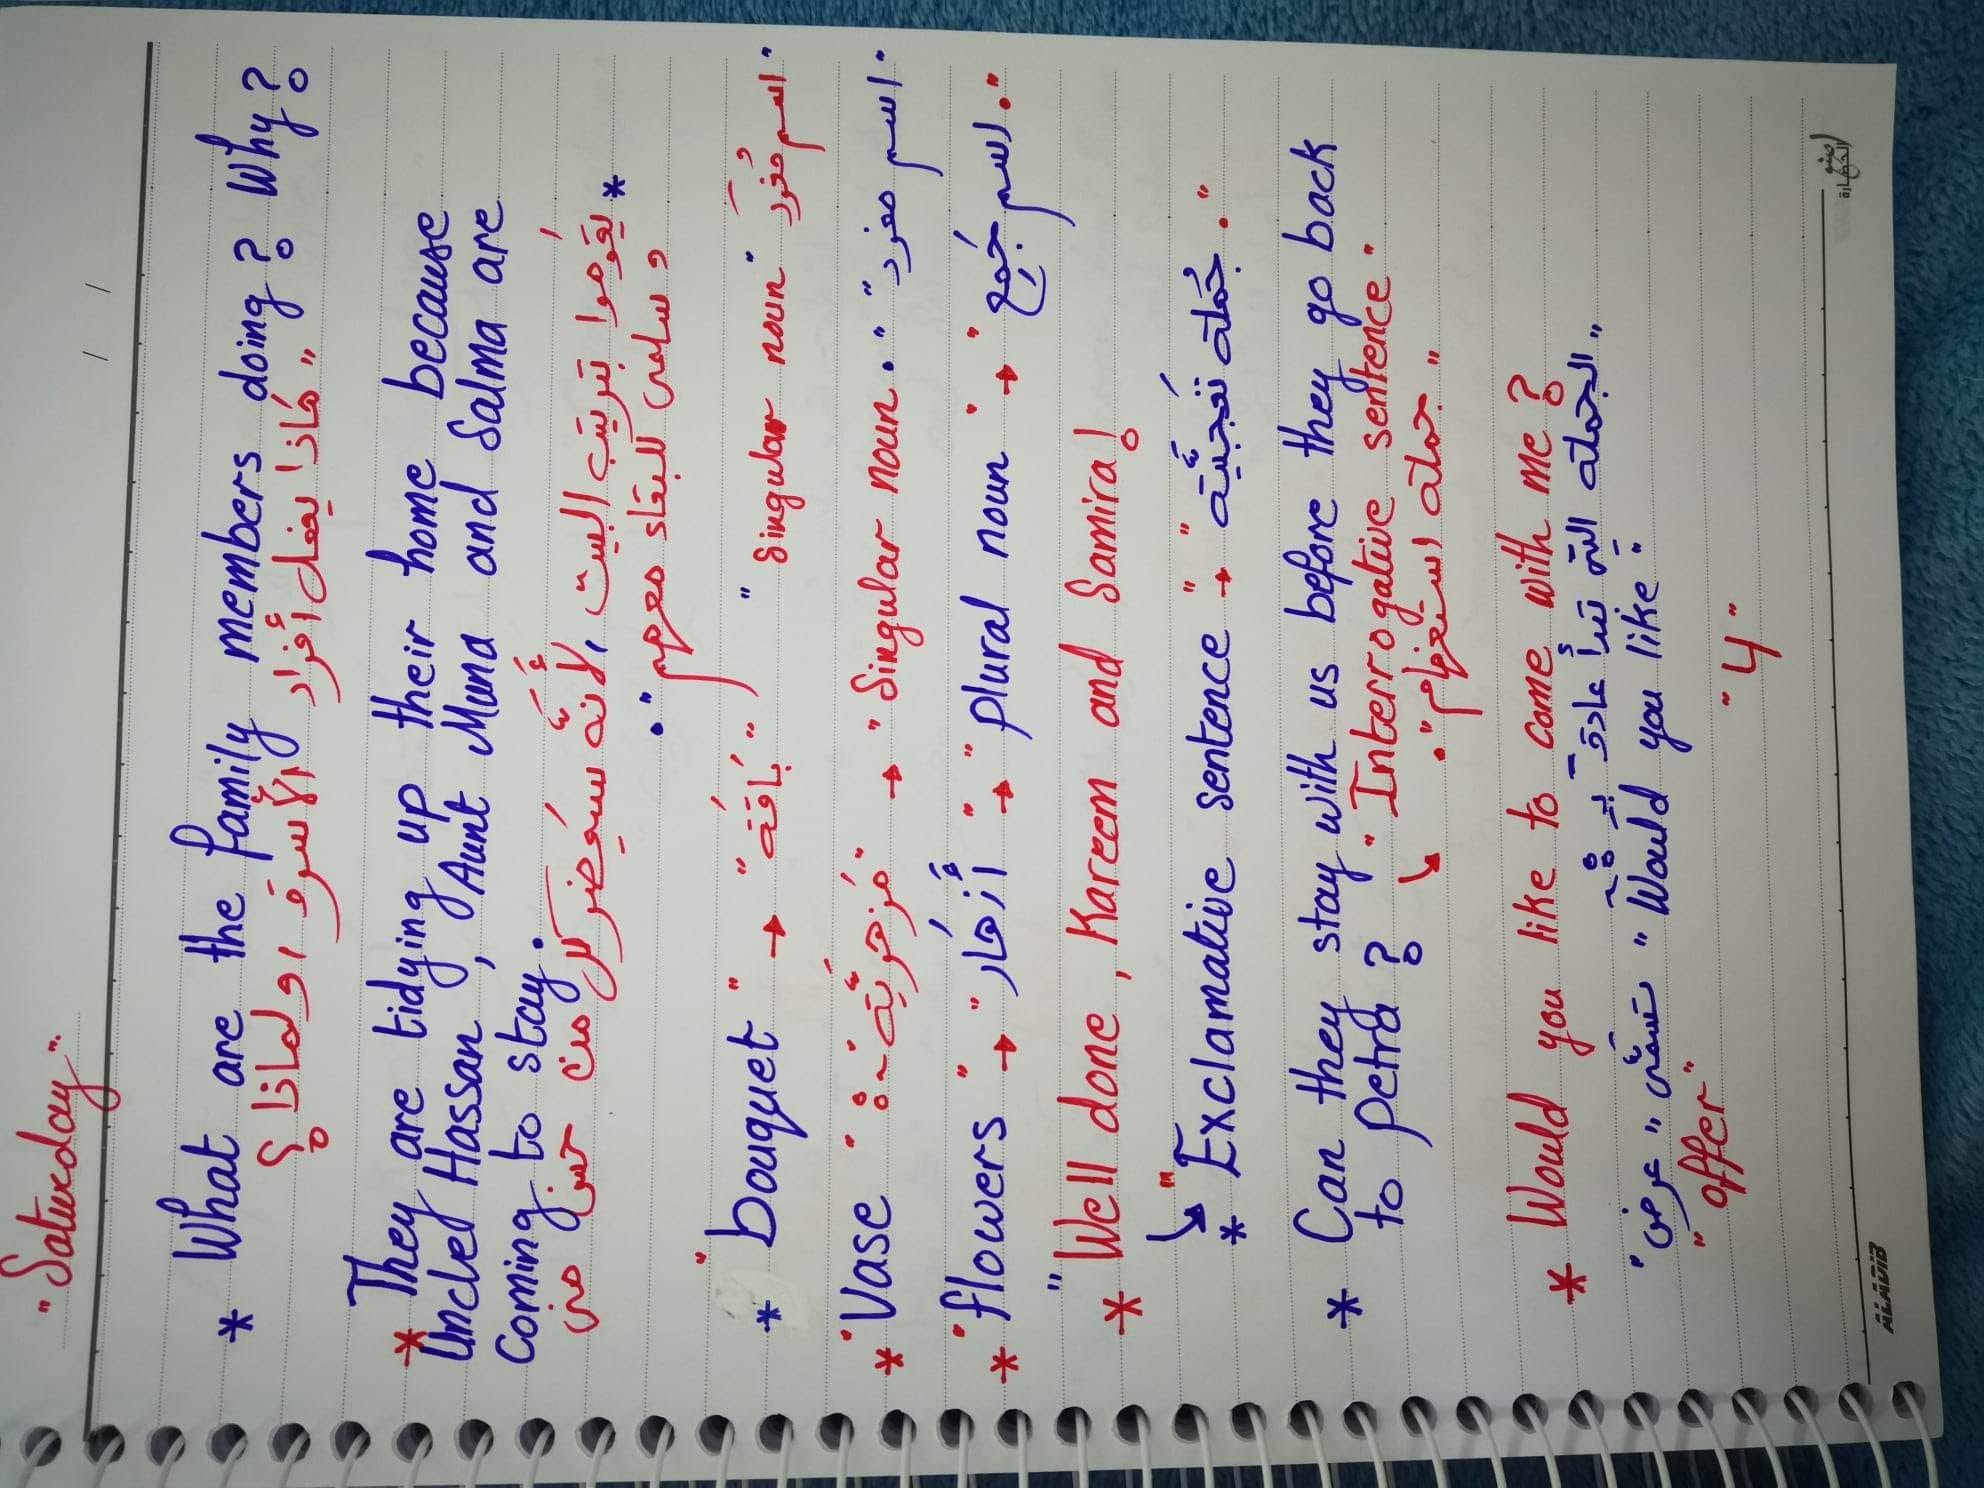 "Saturday".
/ /
* What are the family members doing? Why?
"ماذا يفعل أفراد الأسرة، ولماذا؟
* They are tidying up their home because
Uncle Hassan, Aunt Muna and Salma are
Coming to stay.
* يقوموا بترتيب البيت، لأنَّه سيحضر كل من حسن
و سلمى للبقاء معهم".
* "bouquet" → "بَاقة" "singular noun" "اسم مُفرَد"
* "Vase" : "مَزهريَّة" → "Singular noun." "اسم مفرد"
* "flowers" → "أزهَار" → "plural noun" → "اسم جَمع."
* "Well done, Kareem and Samira!
* "Exclamative sentence → "جُملة تعَجبيَّة."
* Can they stay with us before they go back
to petra? "Interrogative sentence".
"جملة استفهام".
* Would you like to come with me?
"عرض" تسمَّى "Would you like" الجملة التي تبدأ عادة بـ
"offer"
"4"
ALADIB